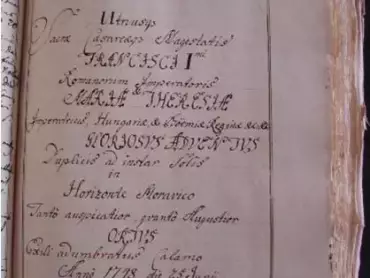 Utriusq
Sacrae Caesareaeq Magestatis
FRANCISCI I mi
Romanorum Imperatoris
&
MARIÆ THERESIÆ
Imperatricis, Hungariæ, & Boëmiæ Reginæ &c &c
GLORIOSUS ADVENTUS
Duplicis ad instar Solis
in
Horizonte Moravico
Tantò auspicatior, quantò Augustior
ORTUS
Rudi adumbratus Calamo
Anno 1748 die